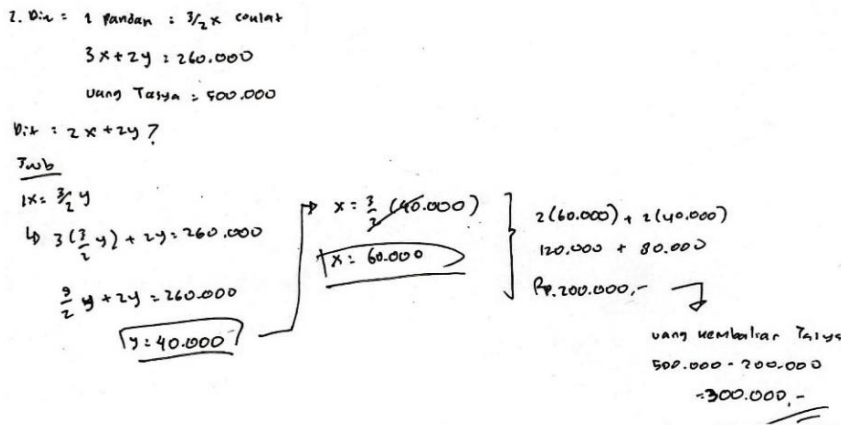 2. Dik = 1 Pandan : 3/2 x coulat
3x+2y : 260.000
uang Tasya : 500.000
Dit : 2x+2y ?
Jwb
1x= 3/2 y
↳ 3(3/2 y) + 2y = 260.000
9/2 y + 2y = 260.000
y = 40.000
x = 3/2 (40.000)
x = 60.000
2(60.000) + 2(40.000)
120.000 + 80.000
Rp.200.000,-
uang kembalian Tasya
500.000 - 200.000
=300.000,-